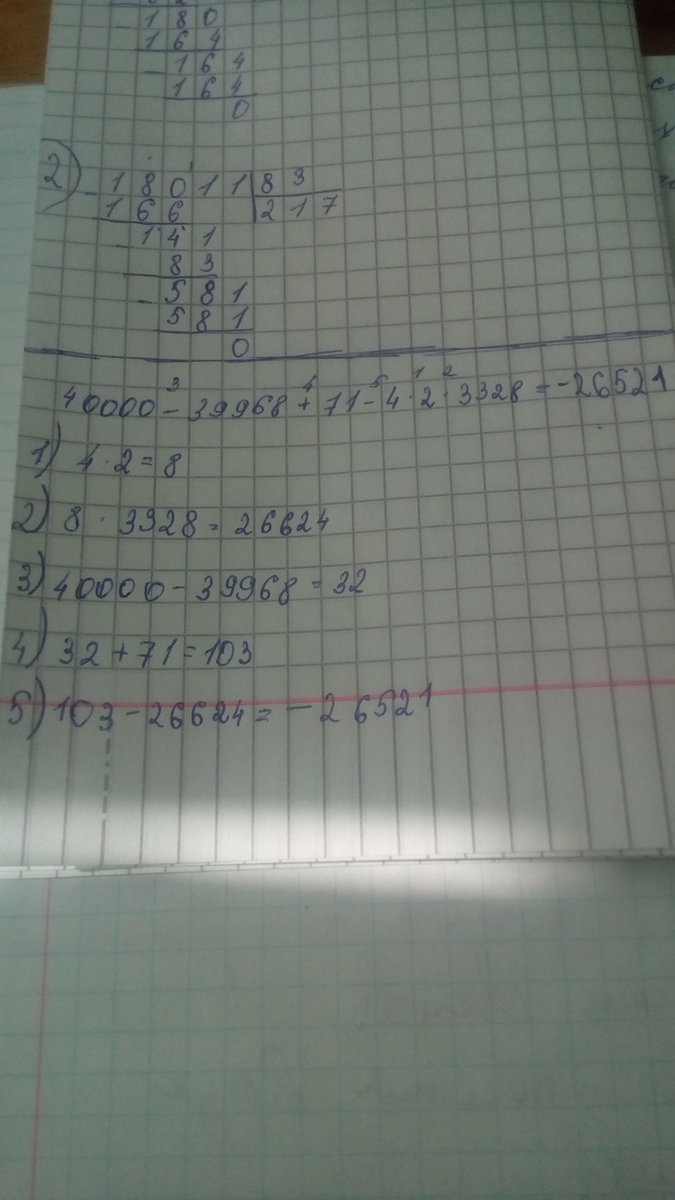 180
164
- 164
164
0
2) - 18011 83
166 217
- 141
83
- 581
581
0
3 4 5 1 2
40000 - 39968 + 71 - 4 · 2 · 3328 = -26521
1) 4 · 2 = 8
2) 8 · 3328 = 26624
3) 40000 - 39968 = 32
4) 32 + 71 = 103
5) 103 - 26624 = - 26521